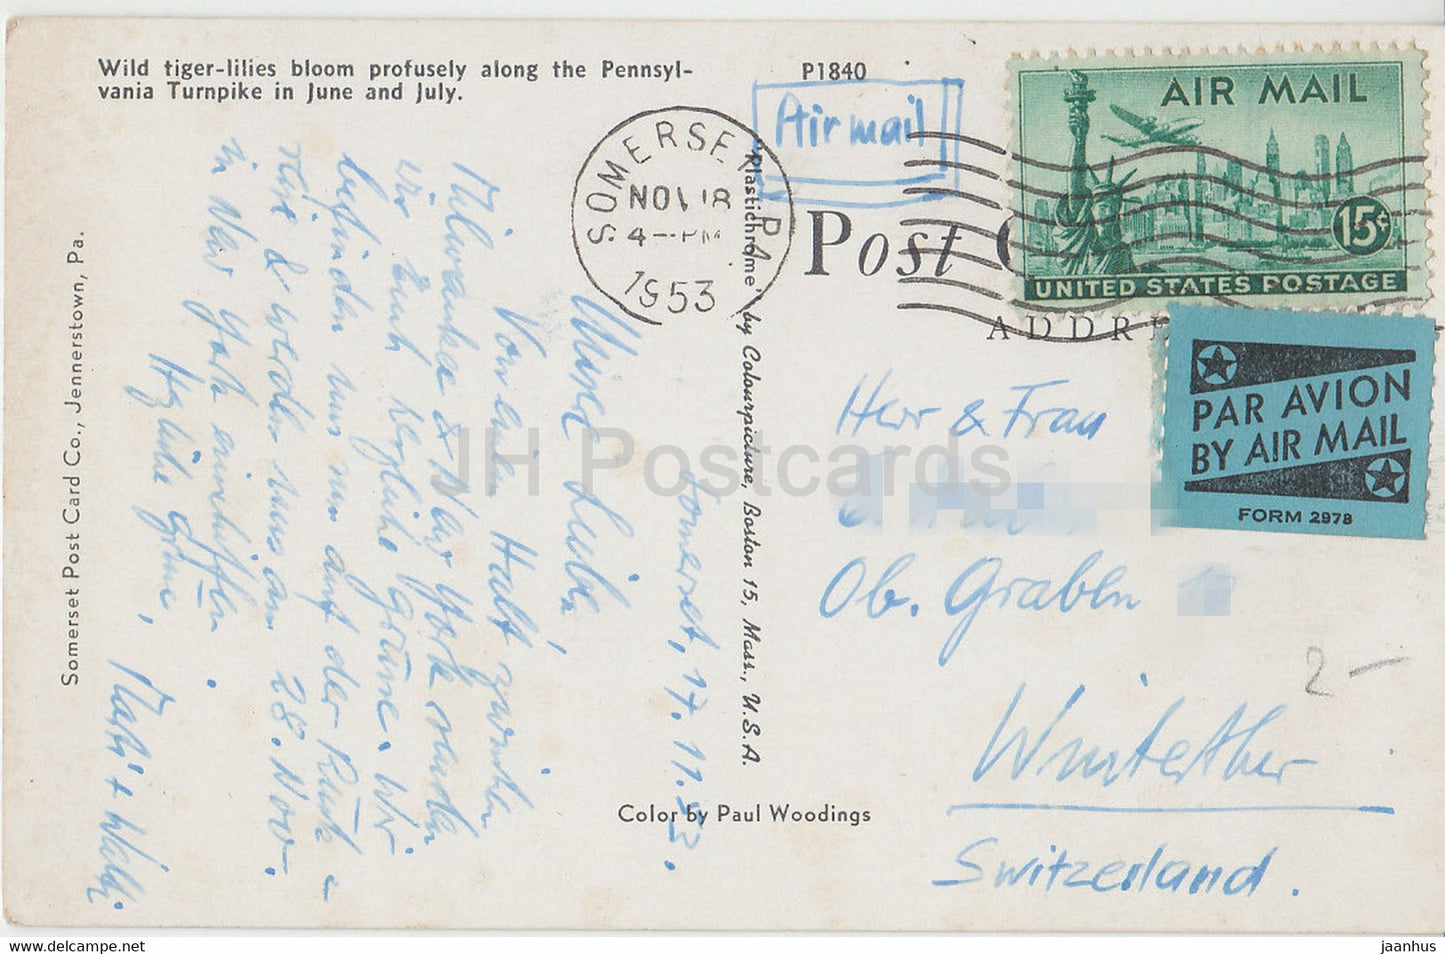 Wild tiger-lilies bloom profusely along the Pennsyl-
vania Turnpike in June and July.
P1840
Air mail
SOMERSE PA
NOV 18
4 — PM
1953
AIR MAIL
15¢
UNITED STATES POSTAGE
Post C
ADDRE
PAR AVION
BY AIR MAIL
FORM 2978
Somerset Post Card Co., Jennerstown, Pa.
"Plastichrome" by Colourpicture, Boston 15, Mass., U.S.A.
Color by Paul Woodings
Somerset, 17.11.53.
Meine Lieben,
Von einem Halt zwischen
Milwaukee & New York senden
wir Euch herzliche Grüsse. Wir
befinden uns nun auf der Rück-
reise & werden uns am 28. Nov.
in New York einschiffen.
Herzliche Grüsse,
+ Walti
Herr & Frau
Ob. Graben
Winterthur
Switzerland.
2 —
JH Postcards
https://www.ansichtskartenversand.com/
jaanhus